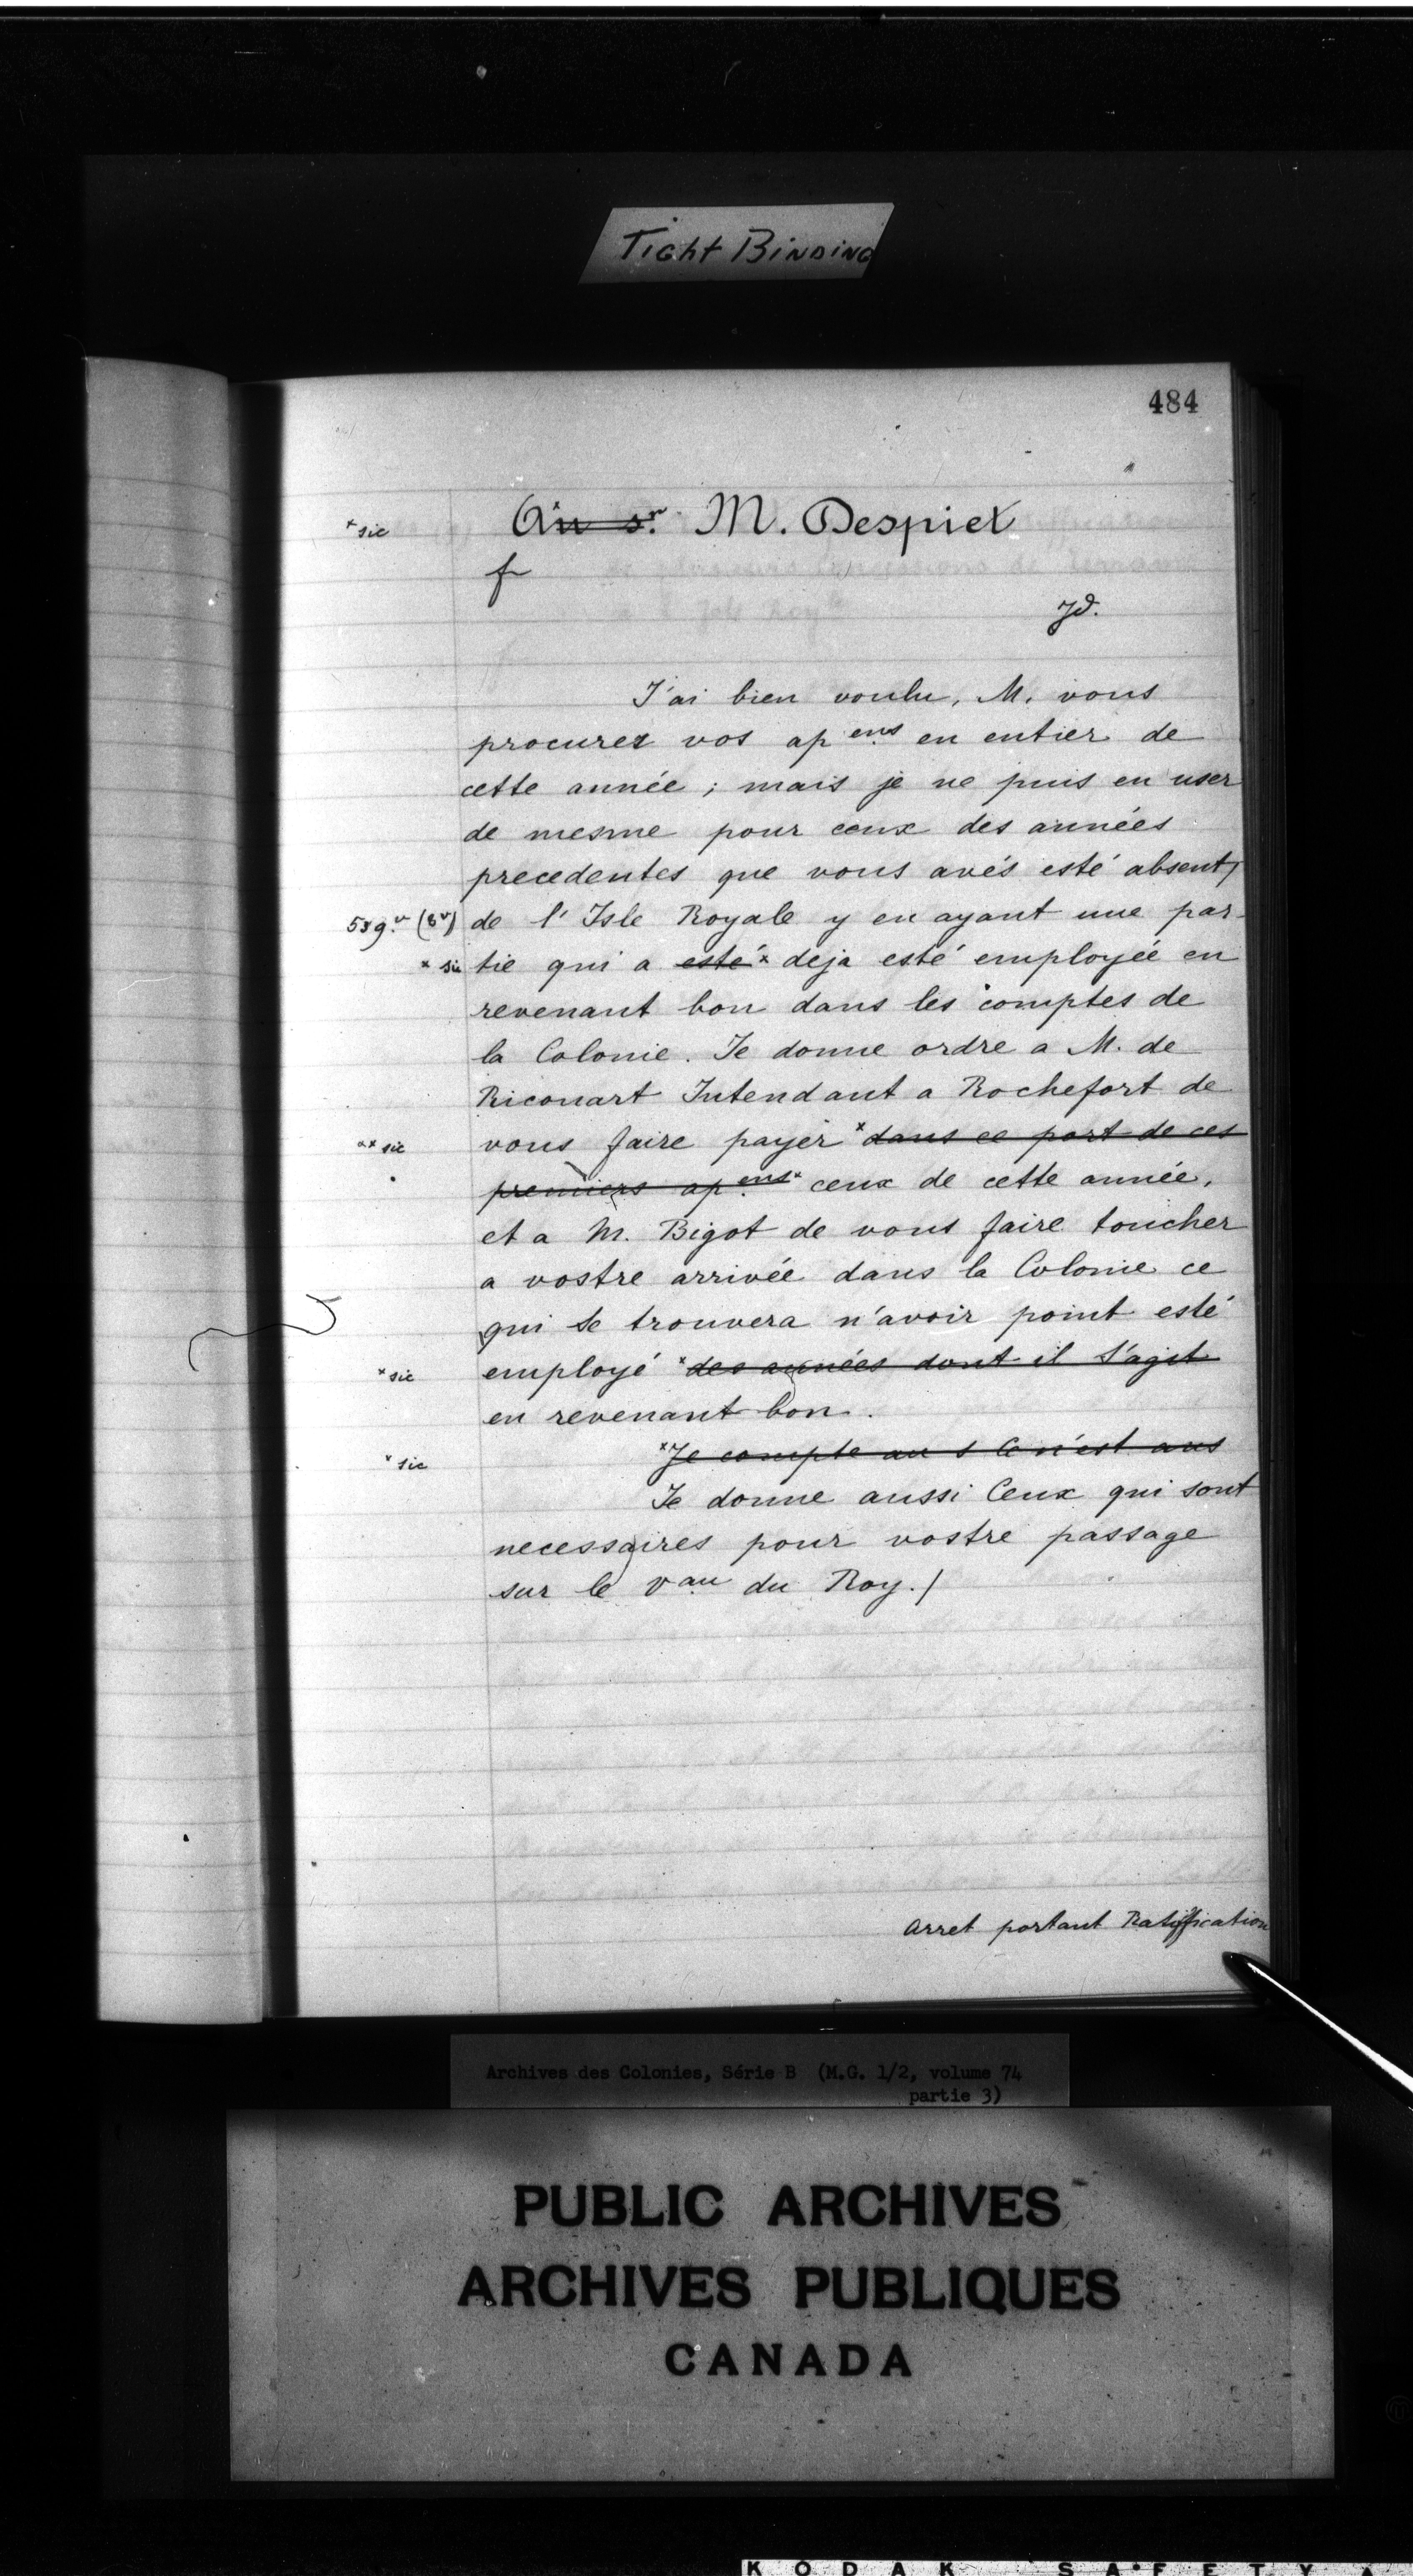 Tight Binding
484
*sic
Au sr. M. Despiet
f
Jd.
J'ai bien voulu, M. vous
procurer vos ap ens en entier de
cette année ; mais je ne puis en user
de mesme pour ceux des années
precedentes que vous avés esté absent
539 v (8v) de l' Isle Royale y en ayant une par-
* sic tie qui a esté* deja esté employée en
revenant bon dans les comptes de
la Colonie. Je donne ordre a M. de
Ricouart Intendant a Rochefort de
** sic vous faire payer *dans ce port de ces
premiers ap ens* ceux de cette année,
et a M. Bigot de vous faire toucher
a vostre arrivée dans la Colonie ce
qui se trouvera n'avoir point esté
*sic employé *des années dont il s'agit
en revenant bon.
*sic *Je compte au s Ce n'est aus
Je donne aussi Ceux qui sont
necessaires pour vostre passage
sur le vau du Roy./
Arret portant Ratiffication
Archives des Colonies, Série B (M.G. 1/2, volume 74
partie 3)
PUBLIC ARCHIVES
ARCHIVES PUBLIQUES
CANADA
KODAK SAFETY